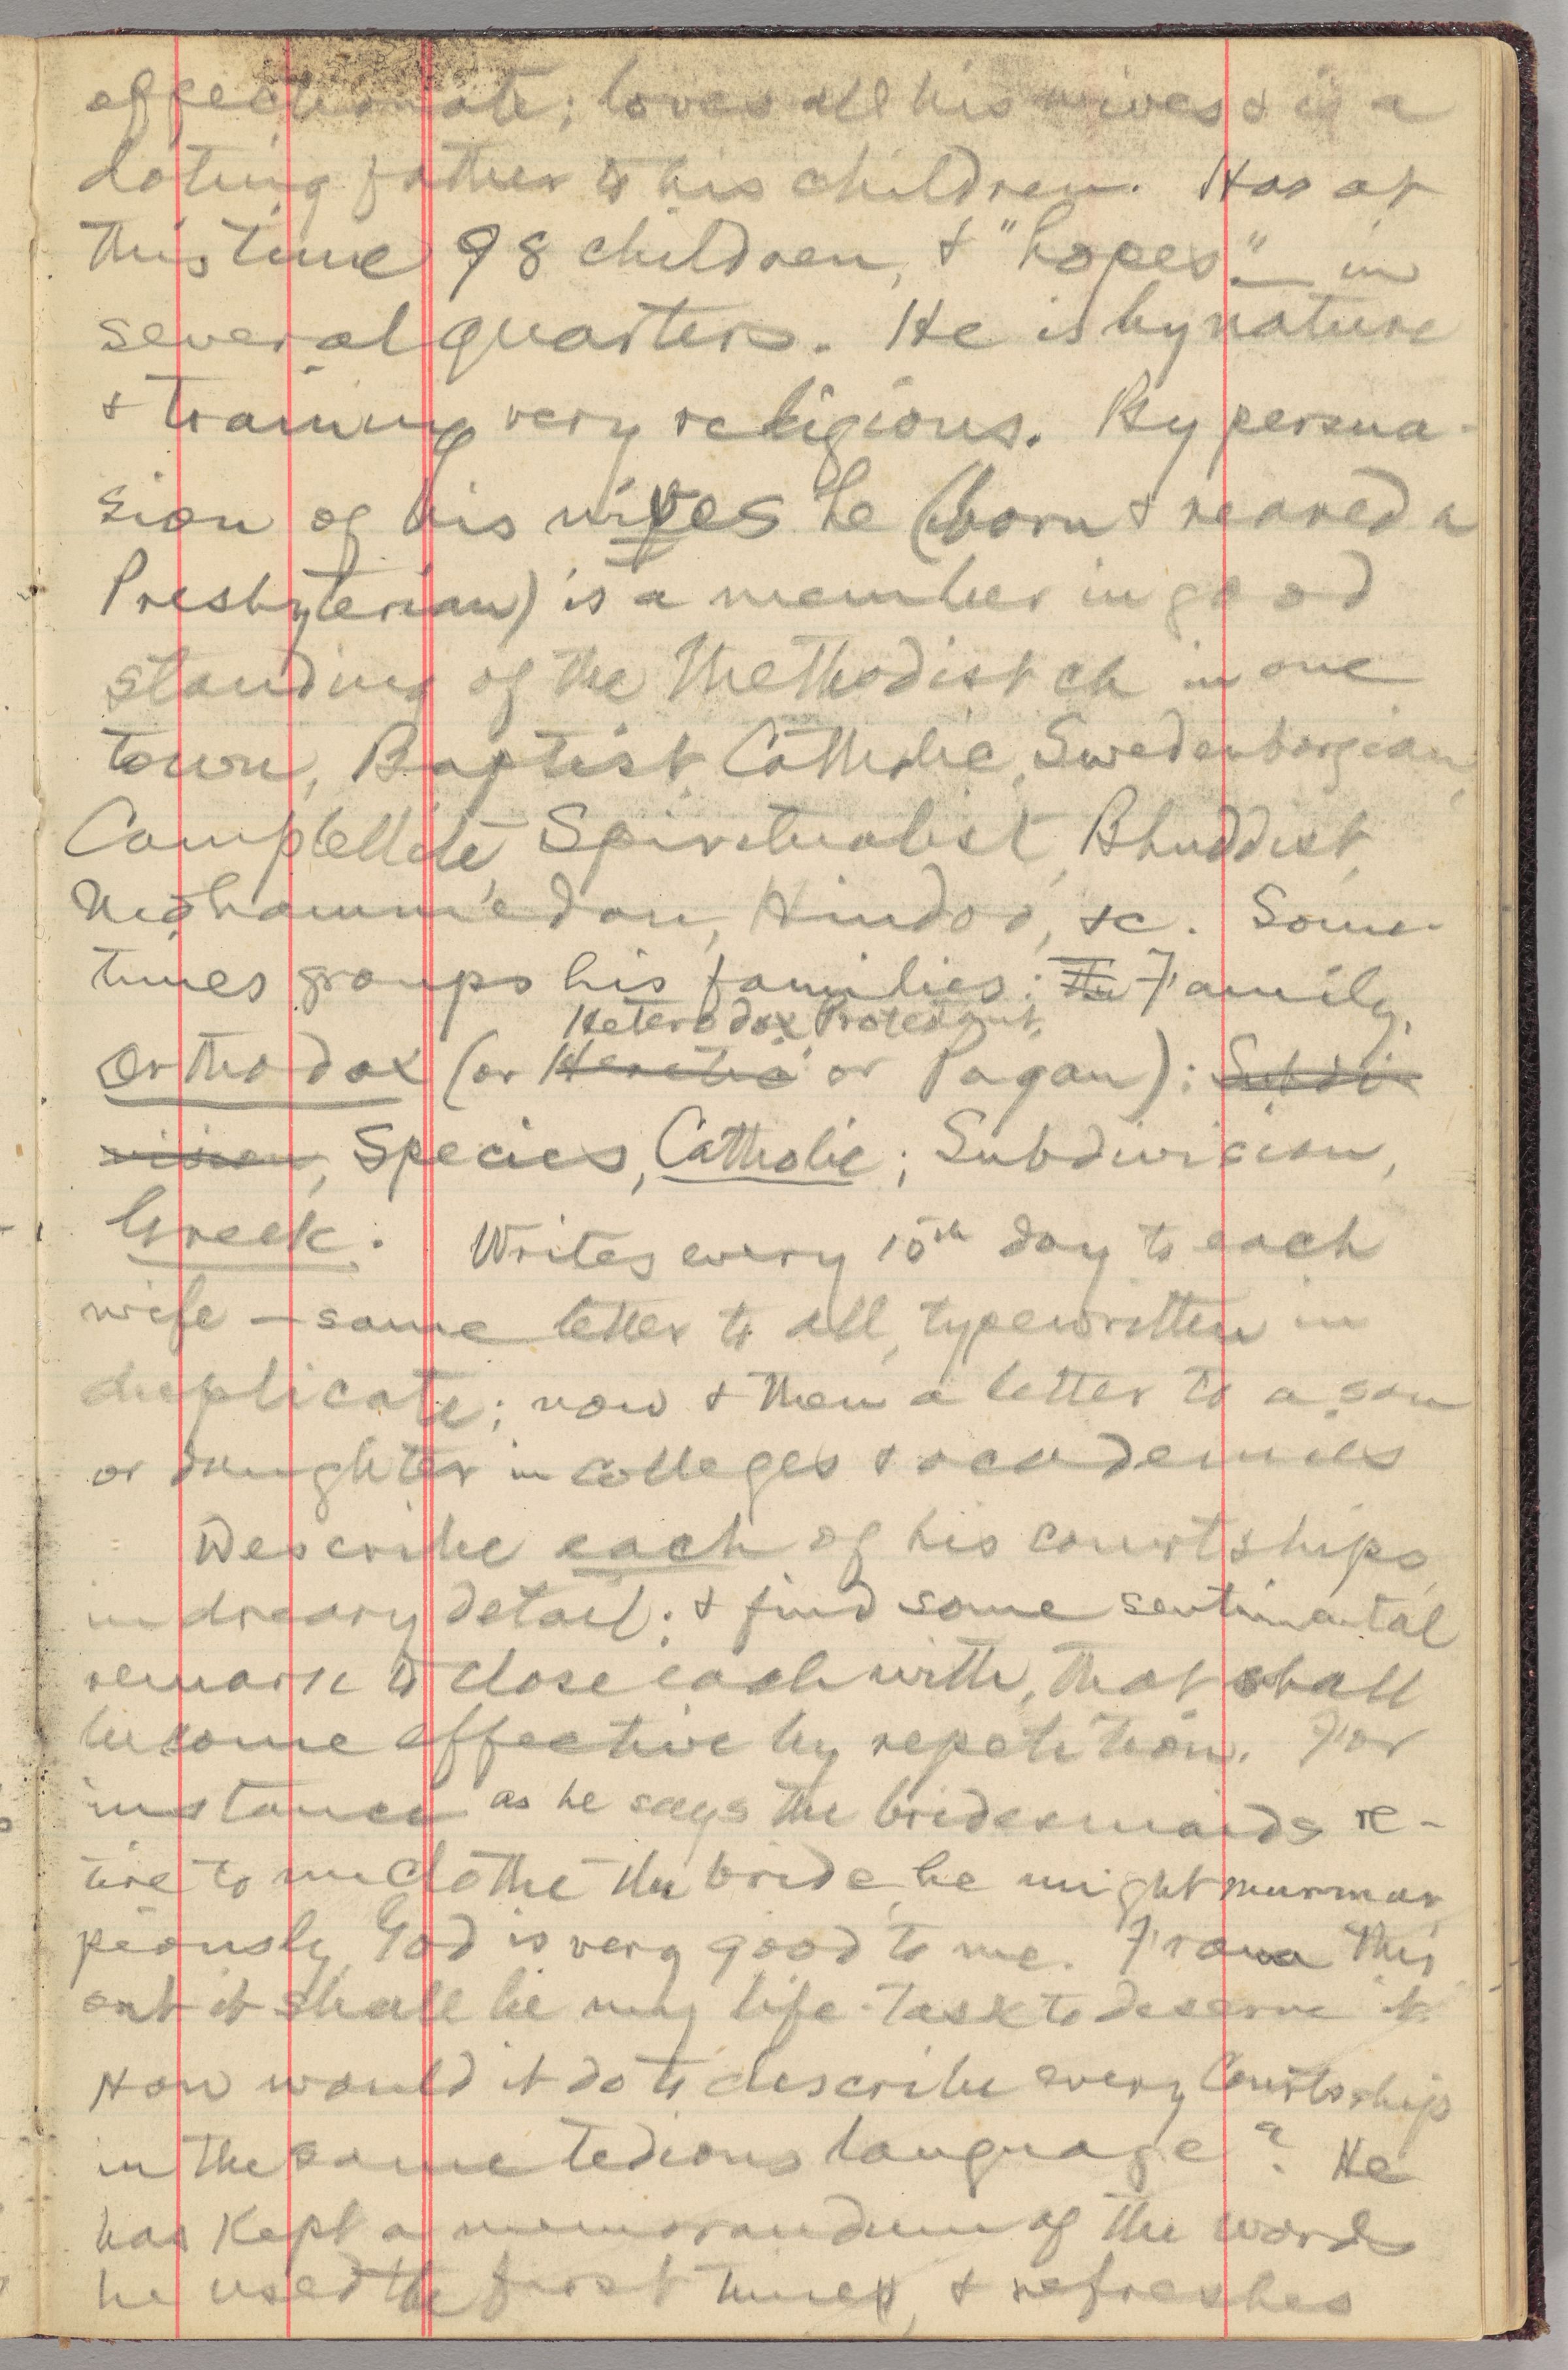 affectionate; loves all his wives & is a
doting father to his children. Has at
this time 98 children, & "hopes" in
several quarters. He is by nature
& training very religious. By persua-
sion of his wives he (born & reared a
Presbyterian) is a member in good
standing of the Methodist ch in one
town, Baptist, Catholic, Swedenborgian,
Campbellite, Spiritualist, Bhuddist,
Mohammedan, Hindoo, &c. Some-
times groups his families: The Family,
Heterodox Protestant,
Orthodox (or Heretic or Pagan): Subdi
vision, Species, Catholic; Subdivision,
Greek. Writes every 10th day to each
wife — same letter to all, typewritten in
duplicate; now & then a letter to a son
or daughter in colleges & academies
Describe each of his courtships,
in dreary detail; & find some sentimental
remark to close each with, that shall
become effective by repetition. For
instance as he says the bridesmaids re-
tire to unclothe the bride, he might murmur,
piously, God is very good to me. From this
out it shall be my life-task to deserve it.
How would it do to describe every Courtship
in the same tedious language? He
has kept a memorandum of the words
he used the first times, & refreshes